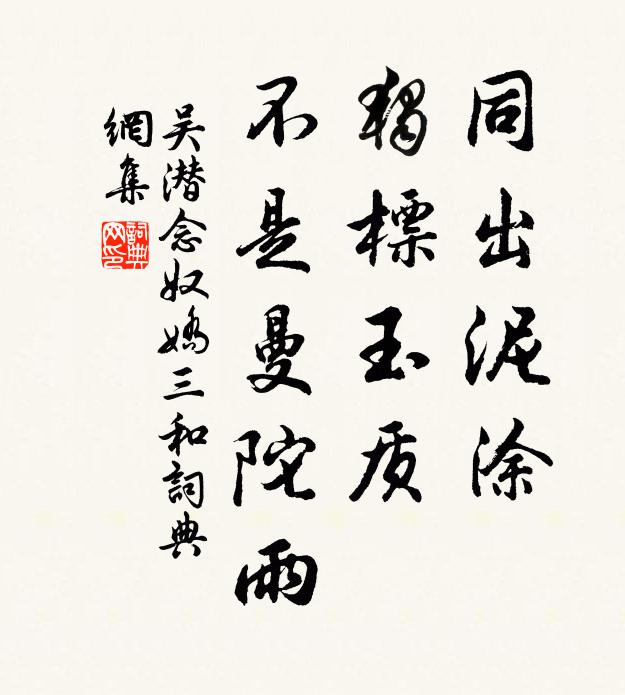 同出泥涂
独標玉质
不是曼陀雨
吴潜念奴嬌三和詞典
網集
詞典
网印